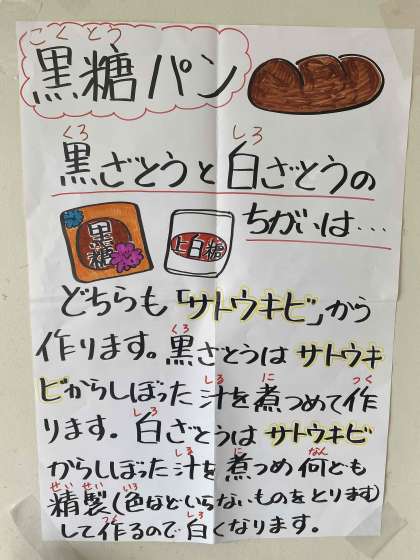 こくとう
黒糖パン
くろ しろ
黒ざとうと白ざとうの
ちがいは…
黒糖
上白糖
どちらも「サトウキビ」から
くろ
作ります。黒ざとうは サトウキ
しる に つく
ビからしぼった 汁を煮つめて作
しろ
ります。白ざとうは サトウキビ
しる に なん
からしぼった 汁を煮つめ 何ども
せいせい いろ
精製(色などいらないものをとります)
つく しろ
して作るので白くなります。